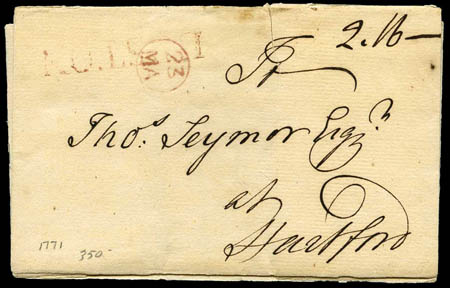 2.16
23
MA
To
Tho.s Seymor Esq.r
at
Hartford
1771
350-